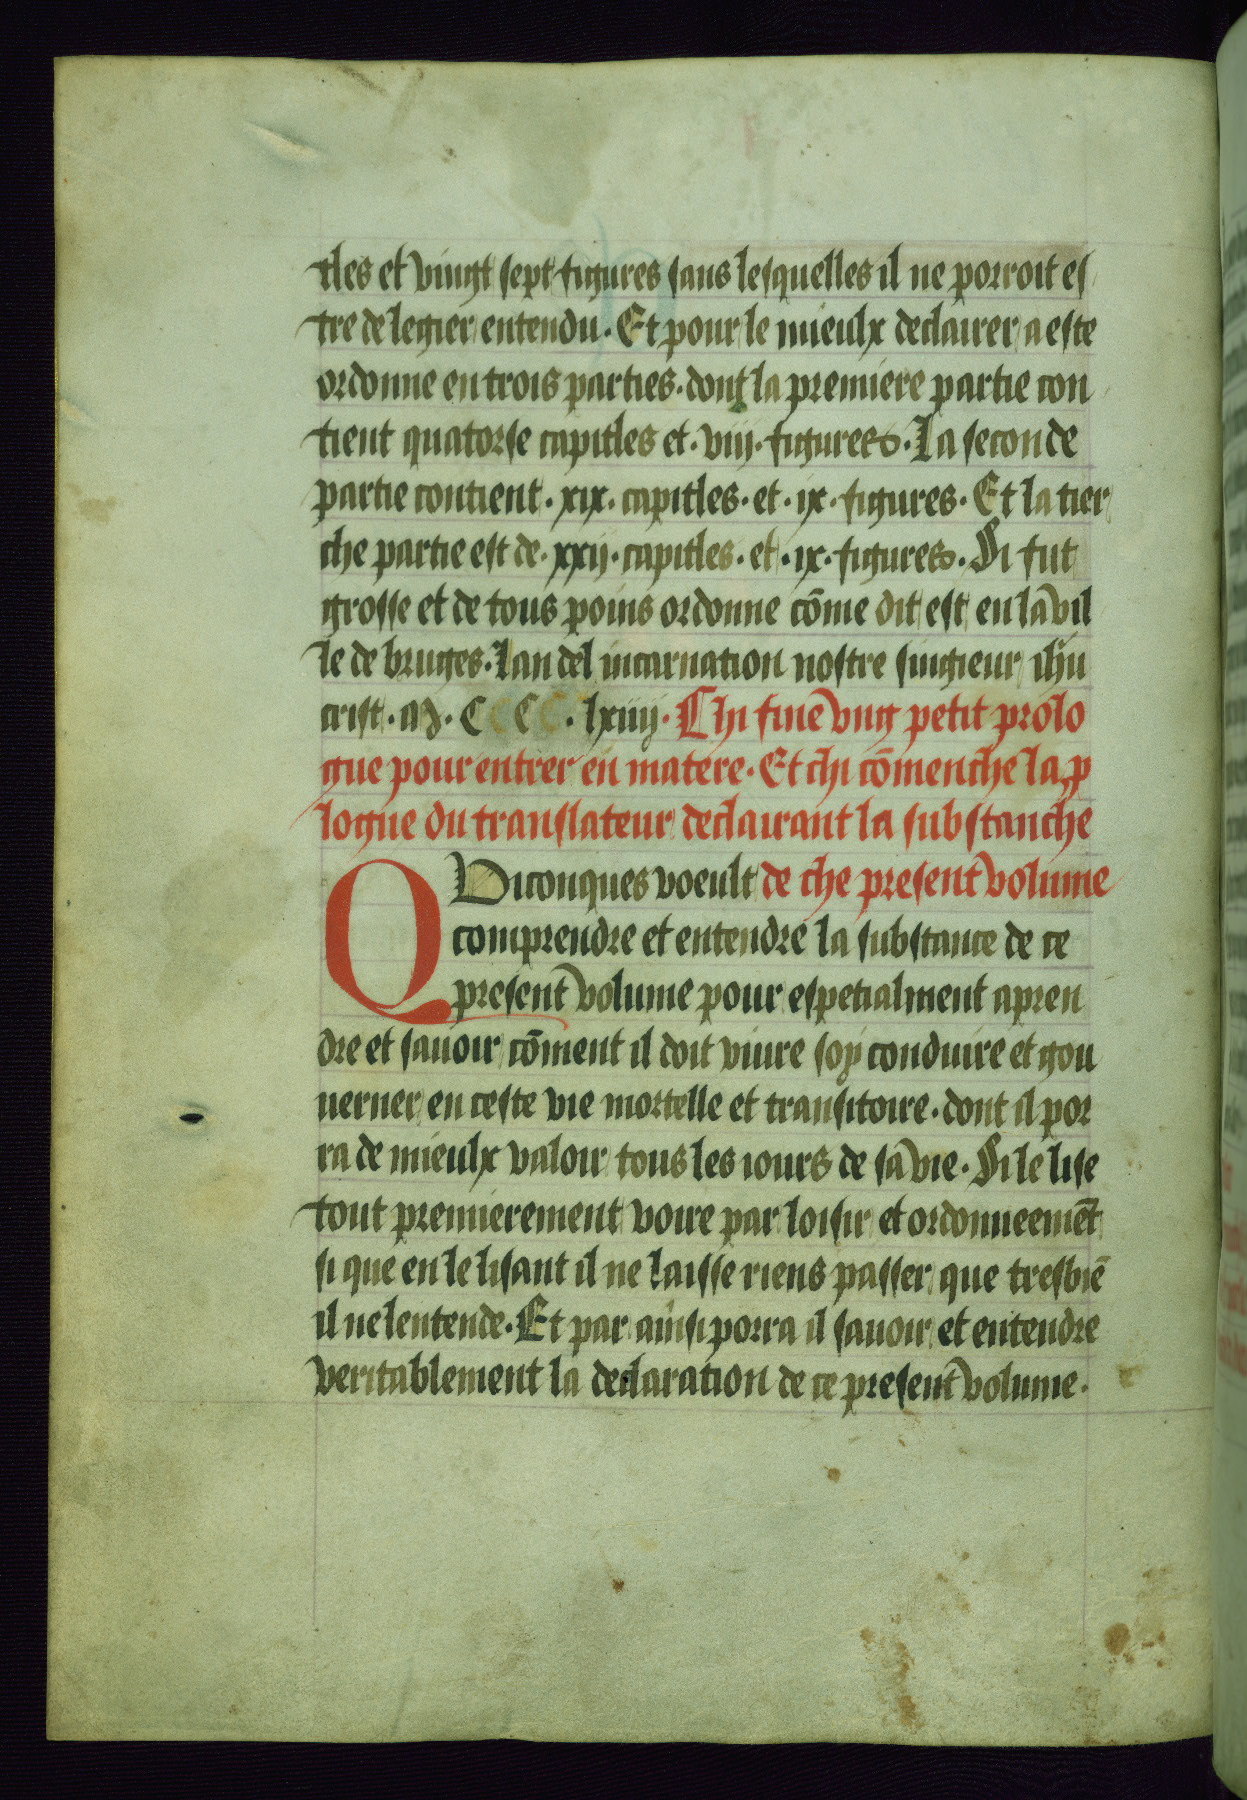 tles et vingt sept figures sans lesquelles il ne porroit es
tre de legier entendu. Et pour le mieulx declairer a este
ordonne en trois parties. dont la premiere partie con
tient quatorse capitles et. viij. figures. La seconde
partie contient. xix. capitles. et. ix. figures. Et la tier
che partie est de. xxij. capitles. et. ix. figures. Si fut
grosse et de tous poins ordonne cōme dit est en la vil
le de bruges. Lan del incarnation nostre singieur ihū
crist. M. CCCC. lxiiij. Chi fine vng petit prolo
gue pour entrer en matere. Et chi cōmenche la ꝓ
logue du translateur declairant la substanche
QViconques voeult de che present volume
comprendre et entendre la substance de ce
present volume pour espetialment apren
dre et sauoir cōment il doit viure soy conduire et gou
uerner en ceste vie mortelle et transitoire. dont il por
ra de mieulx valoir tous les iours de sa vie. Si le lise
tout premierement voire par loisir et ordonneemēt
si que en le lisant il ne laisse riens passer que tresbiē
il ne lentende. Et par ainsi porra il sauoir et entendre
veritablement la declaration de ce present volume.